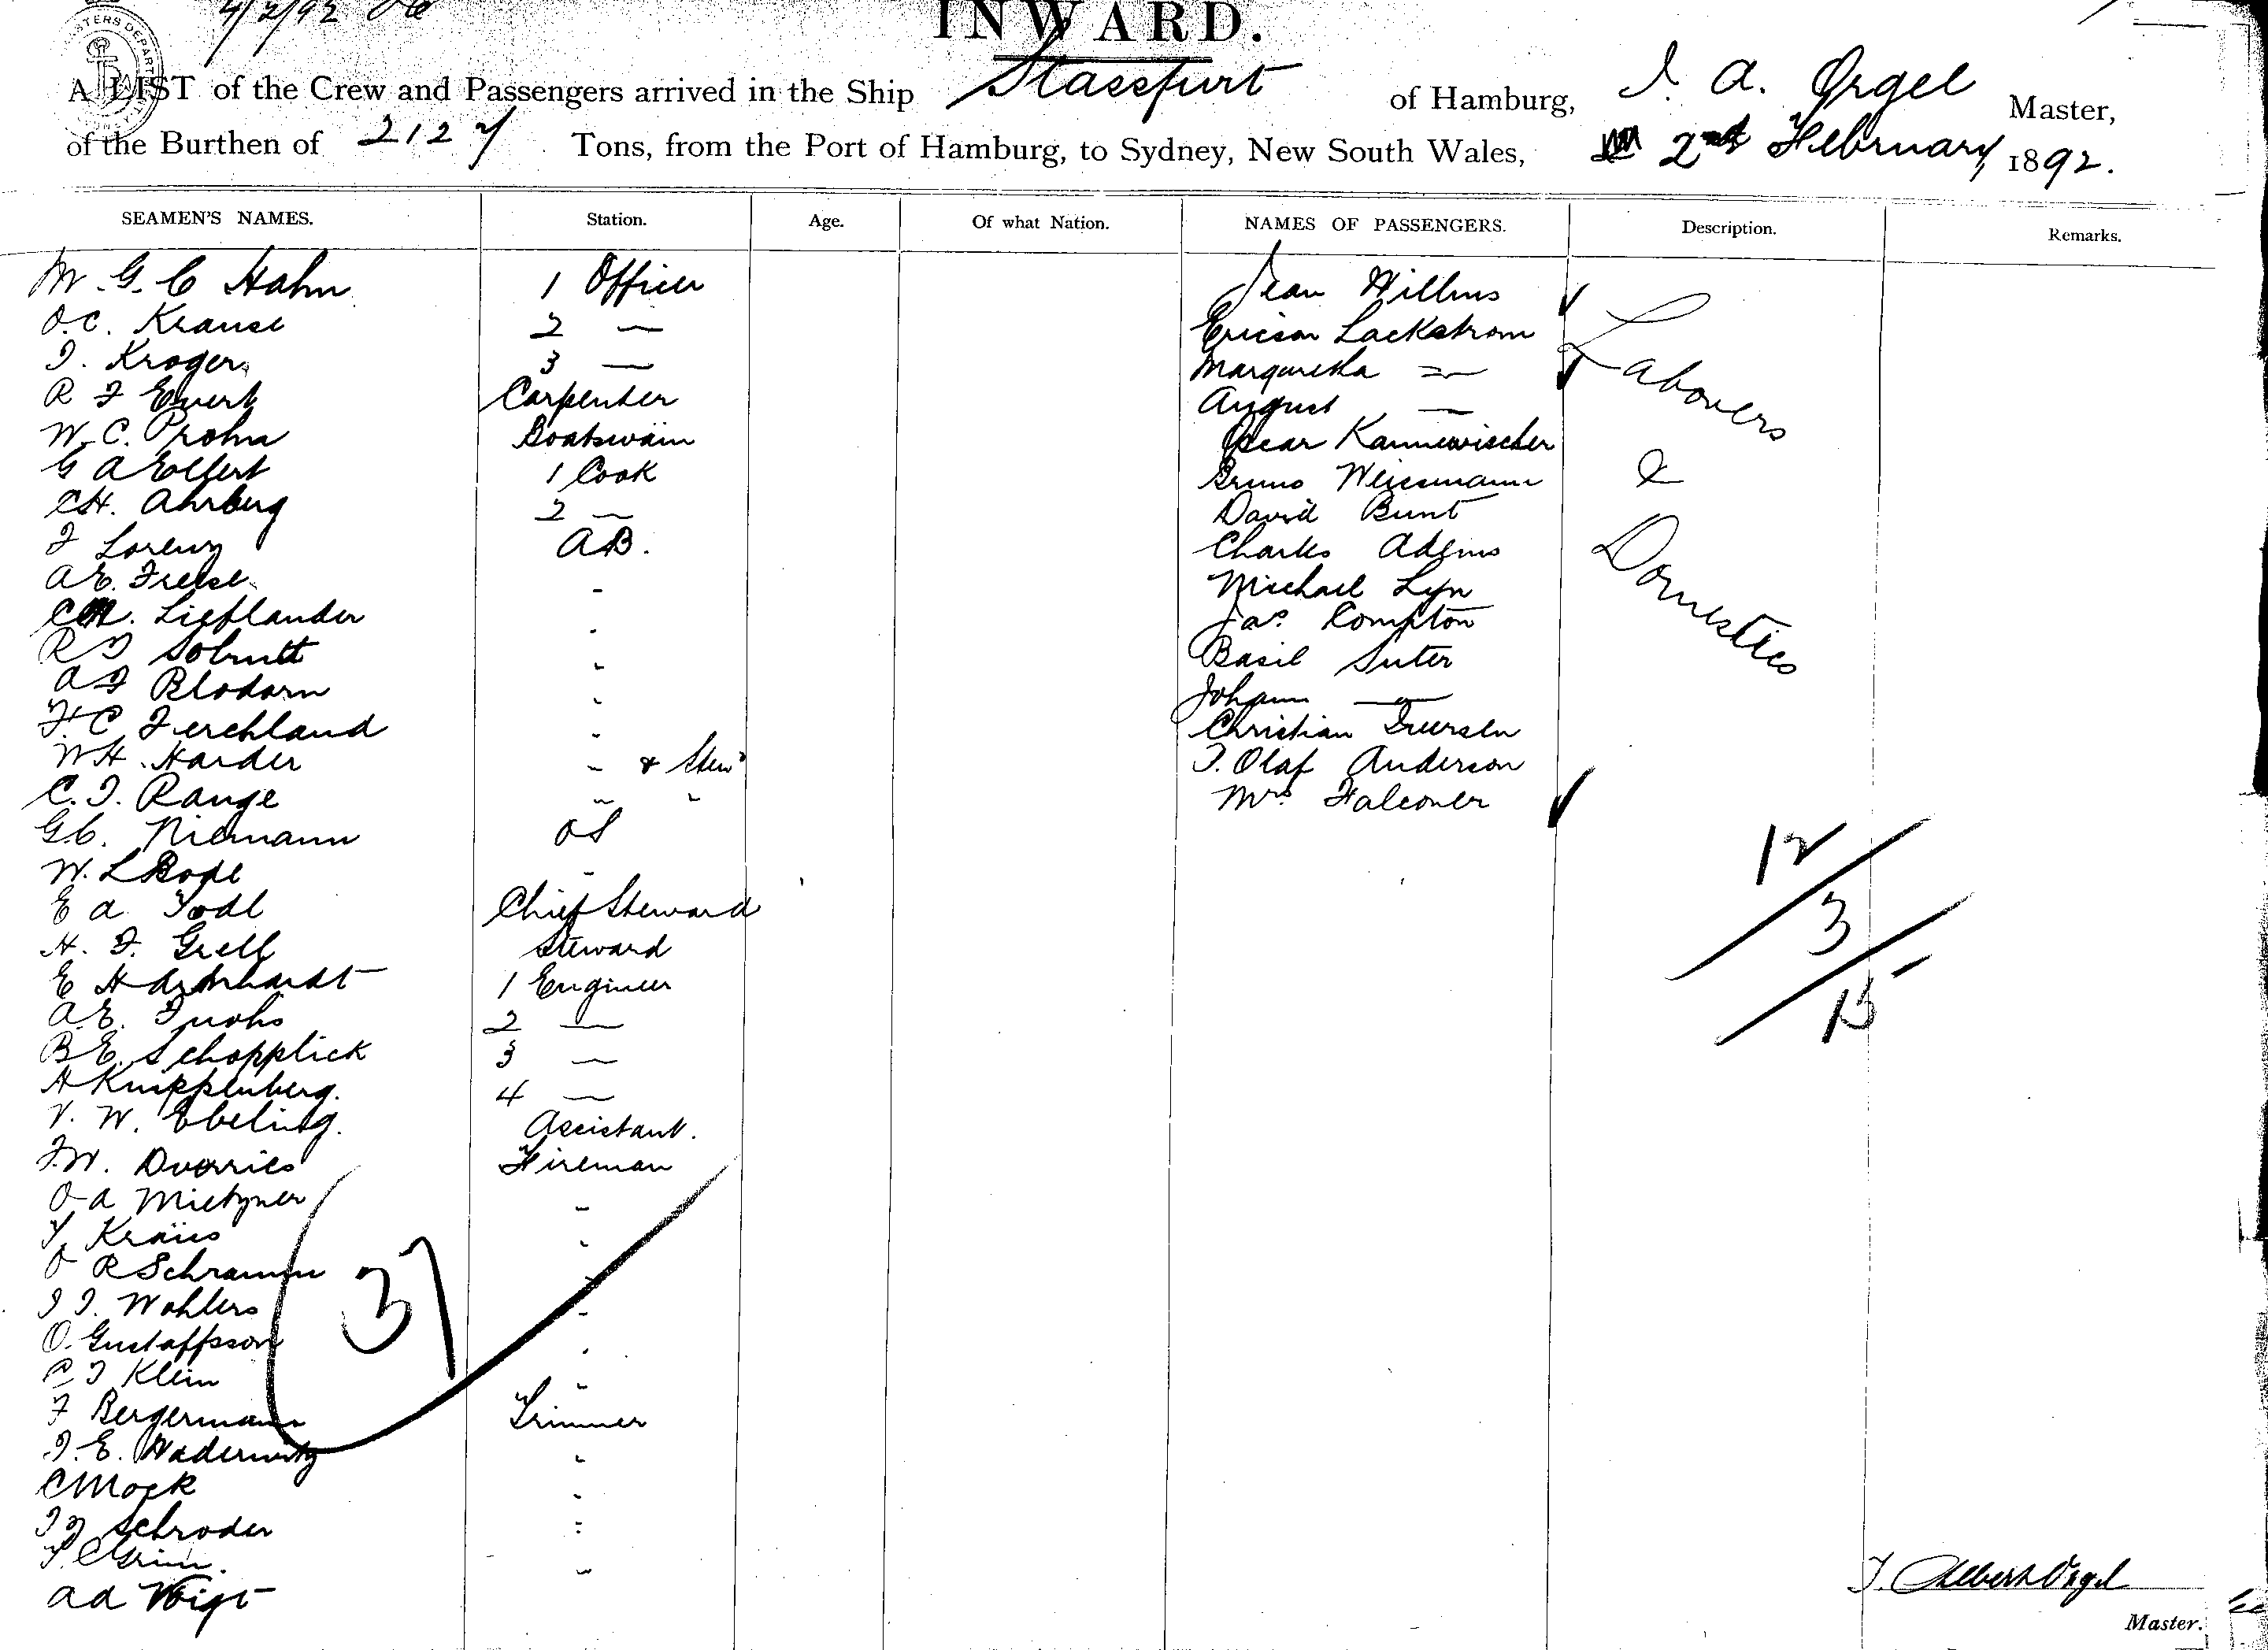 4/2/92
INWARD.
A LIST of the Crew and Passengers arrived in the Ship Stassfurt of Hamburg, J. A. Orgel Master,
of the Burthen of 2127 Tons, from the Port of Hamburg, to Sydney, New South Wales, 2nd February 1892.
SEAMEN'S NAMES. Station. Age. Of what Nation. NAMES OF PASSENGERS. Description. Remarks.
M. G. C Hahn 1 Officer Jean Willms
O. C. Krause 2 — Ericson Lackstrom
J. Kroger 3 — Margaretha —
R F Evert Carpenter August —
W. C. Prohn Boatswain Oscar Kannewischer
G A Ellert 1 Cook Bruno Weissmann
C H. Ahrberg 2 — David Bunt
F Lorenz AB. Charles Adems
A E. Freese - Michael Lyn
Lieflander - Jas. Compton
R J - Basil Suter
A F Blodorn - Johann —
F. C Ferchland - Christian Iversen
W H. Harder - & Stewd J. Olaf Anderson
C. J. Range - - Mrs Falconer
G. C. Niemann OS
W. L Bode -
E A Todl Chief Steward
H. F. Grell Steward
E H 1 Engineer
A. E. Fuchs 2 —
B E. Schopplick 3 —
H Knippenberg. 4 —
V. W. Ebeling. Assistant.
F. W. Dverries Fireman
O A Mietzner -
Y. Kraus -
O R Schramm -
J J. Wohlers -
O. Gustaffsson -
C J Klein -
F Bergermann Trimmer
J. E. Naderwitz -
C Mock -
J J Schroder -
F. C Grim -
A A Voigt
Labourers
&
Domestics
12
3
15
37
J. Albert Orgel
Master.